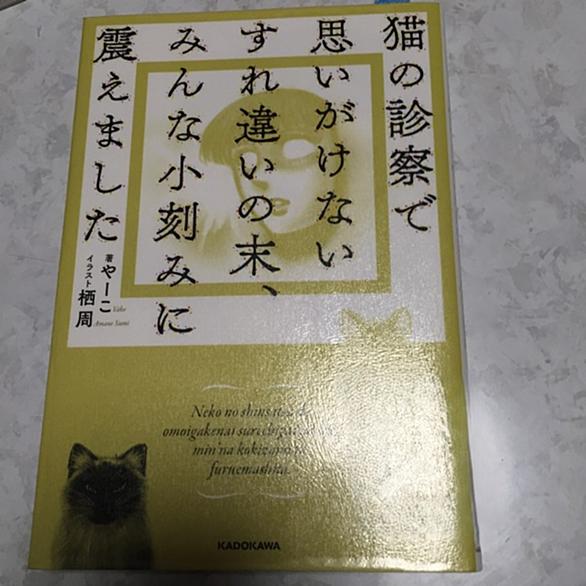 猫の診察で
思いがけない
すれ違いの末、
みんな小刻みに
震えました
著 やーこ Yako
イラスト 栖周 Amane Sumi
Neko no shinsatsu de
omoigakenai surechigai no
min'na kokizami ni
furuemashita.
KADOKAWA